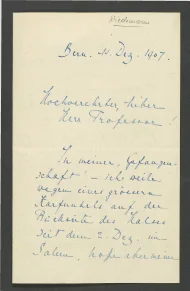 Wiedemann
Bern. 11. Dez. 1907.
Hochverehrter, lieber
Herr Professor!
In meiner "Gefangen-
schaft" – ich weile
wegen eines grossen
Karfunkels auf der
Rückseite des Halses
seit dem 2. Dez. im
Salem,